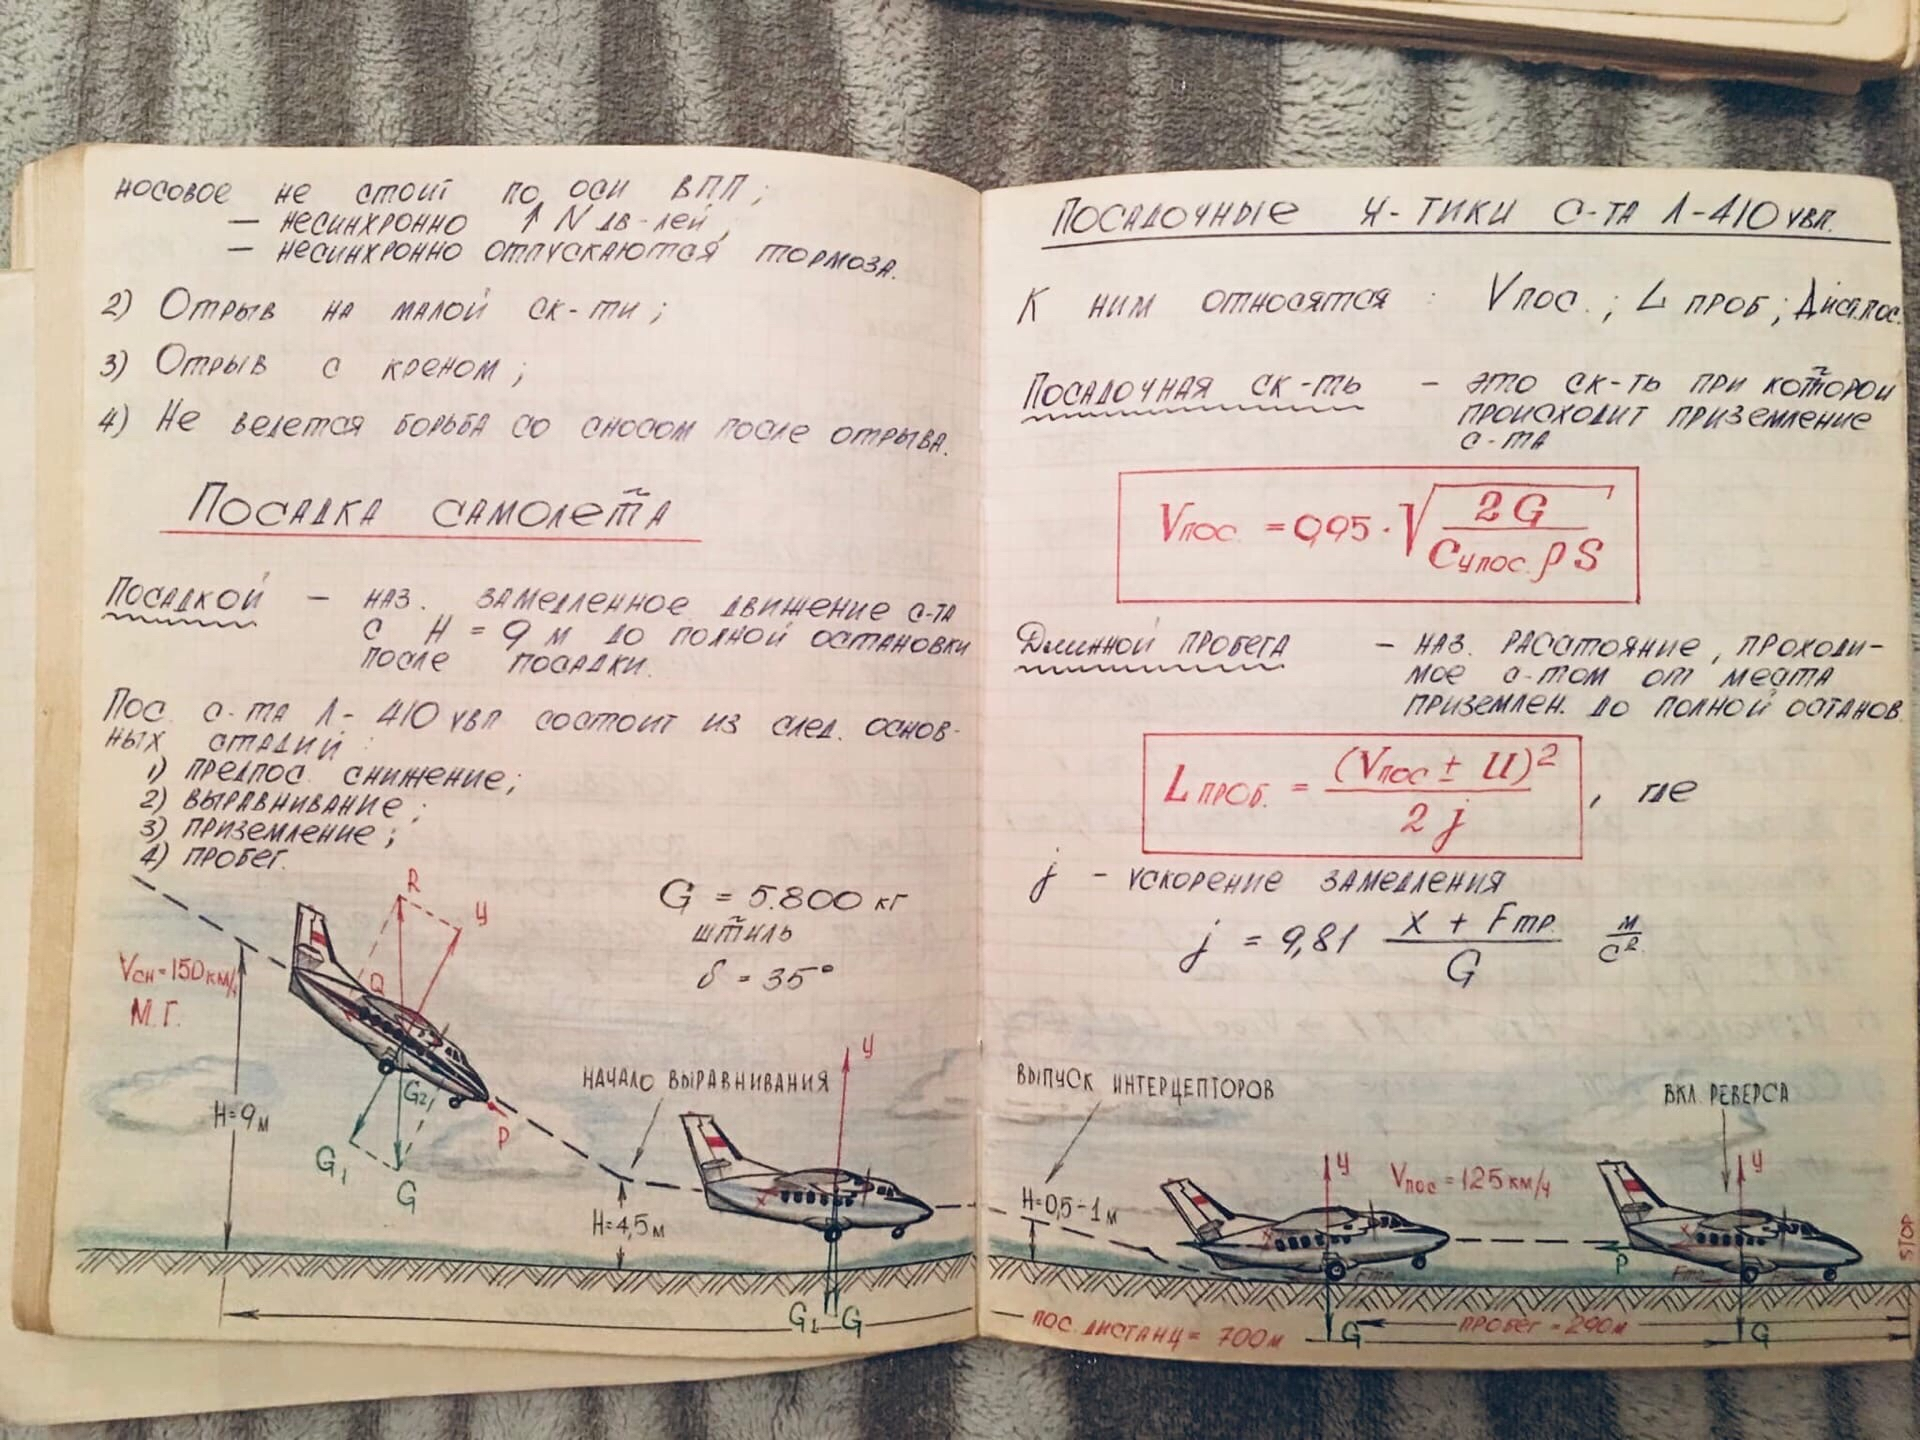 носовое не стоит по оси ВПП;
— несинхронно ↑ N дв-лей,
— несинхронно отпускаются тормоза.
2) Отрыв на малой ск-ти;
3) Отрыв с креном;
4) Не ведется борьба со сносом после отрыва.
Посадка самолета
Посадкой – наз. замедленное движение с-та
с H = 9 м до полной остановки
после посадки.
Пос. с-та Л-410 увп состоит из след. основ-
ных стадий:
1) предпос. снижение;
2) выравнивание;
3) приземление;
4) пробег.
G = 5.800 кг
штиль
δ = 35°
R
У
Vсн=150км/ч
М.Г.
Q
H=9м
G₂
G₁
G
P
НАЧАЛО ВЫРАВНИВАНИЯ
H=4,5м
У
G₁ G
Посадочные Х-тики с-та Л-410 увп.
К ним относятся: Vпос.; L проб; Дист.пос.
Посадочная ск-ть – это ск-ть при которой
происходит приземление
с-та
Vпос. = 0,95 · √ 2G / Cупос. ρ S
Длинной пробега – наз. расстояние, проходи-
мое с-том от места
приземлен. до полной останов.
L проб. = (Vпос ± U)² / 2 j , где
j – ускорение замедления
j = 9,81 X + Fтр. / G м/с²
ВЫПУСК ИНТЕРЦЕПТОРОВ
ВКЛ. РЕВЕРСА
H=0,5-1м
У
Vпос=125км/ч
У
P
Fтр.
Fтр.
Fтр.
STOP
пос. дистанц = 700м
G
пробег = 290м
G